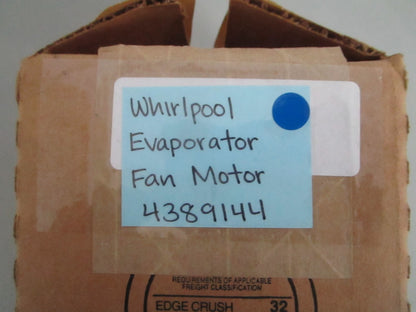 Whirlpool
Evaporator
Fan Motor
4389144
REQUIREMENTS OF APPLICABLE
FREIGHT CLASSIFICATION
EDGE CRUSH 32